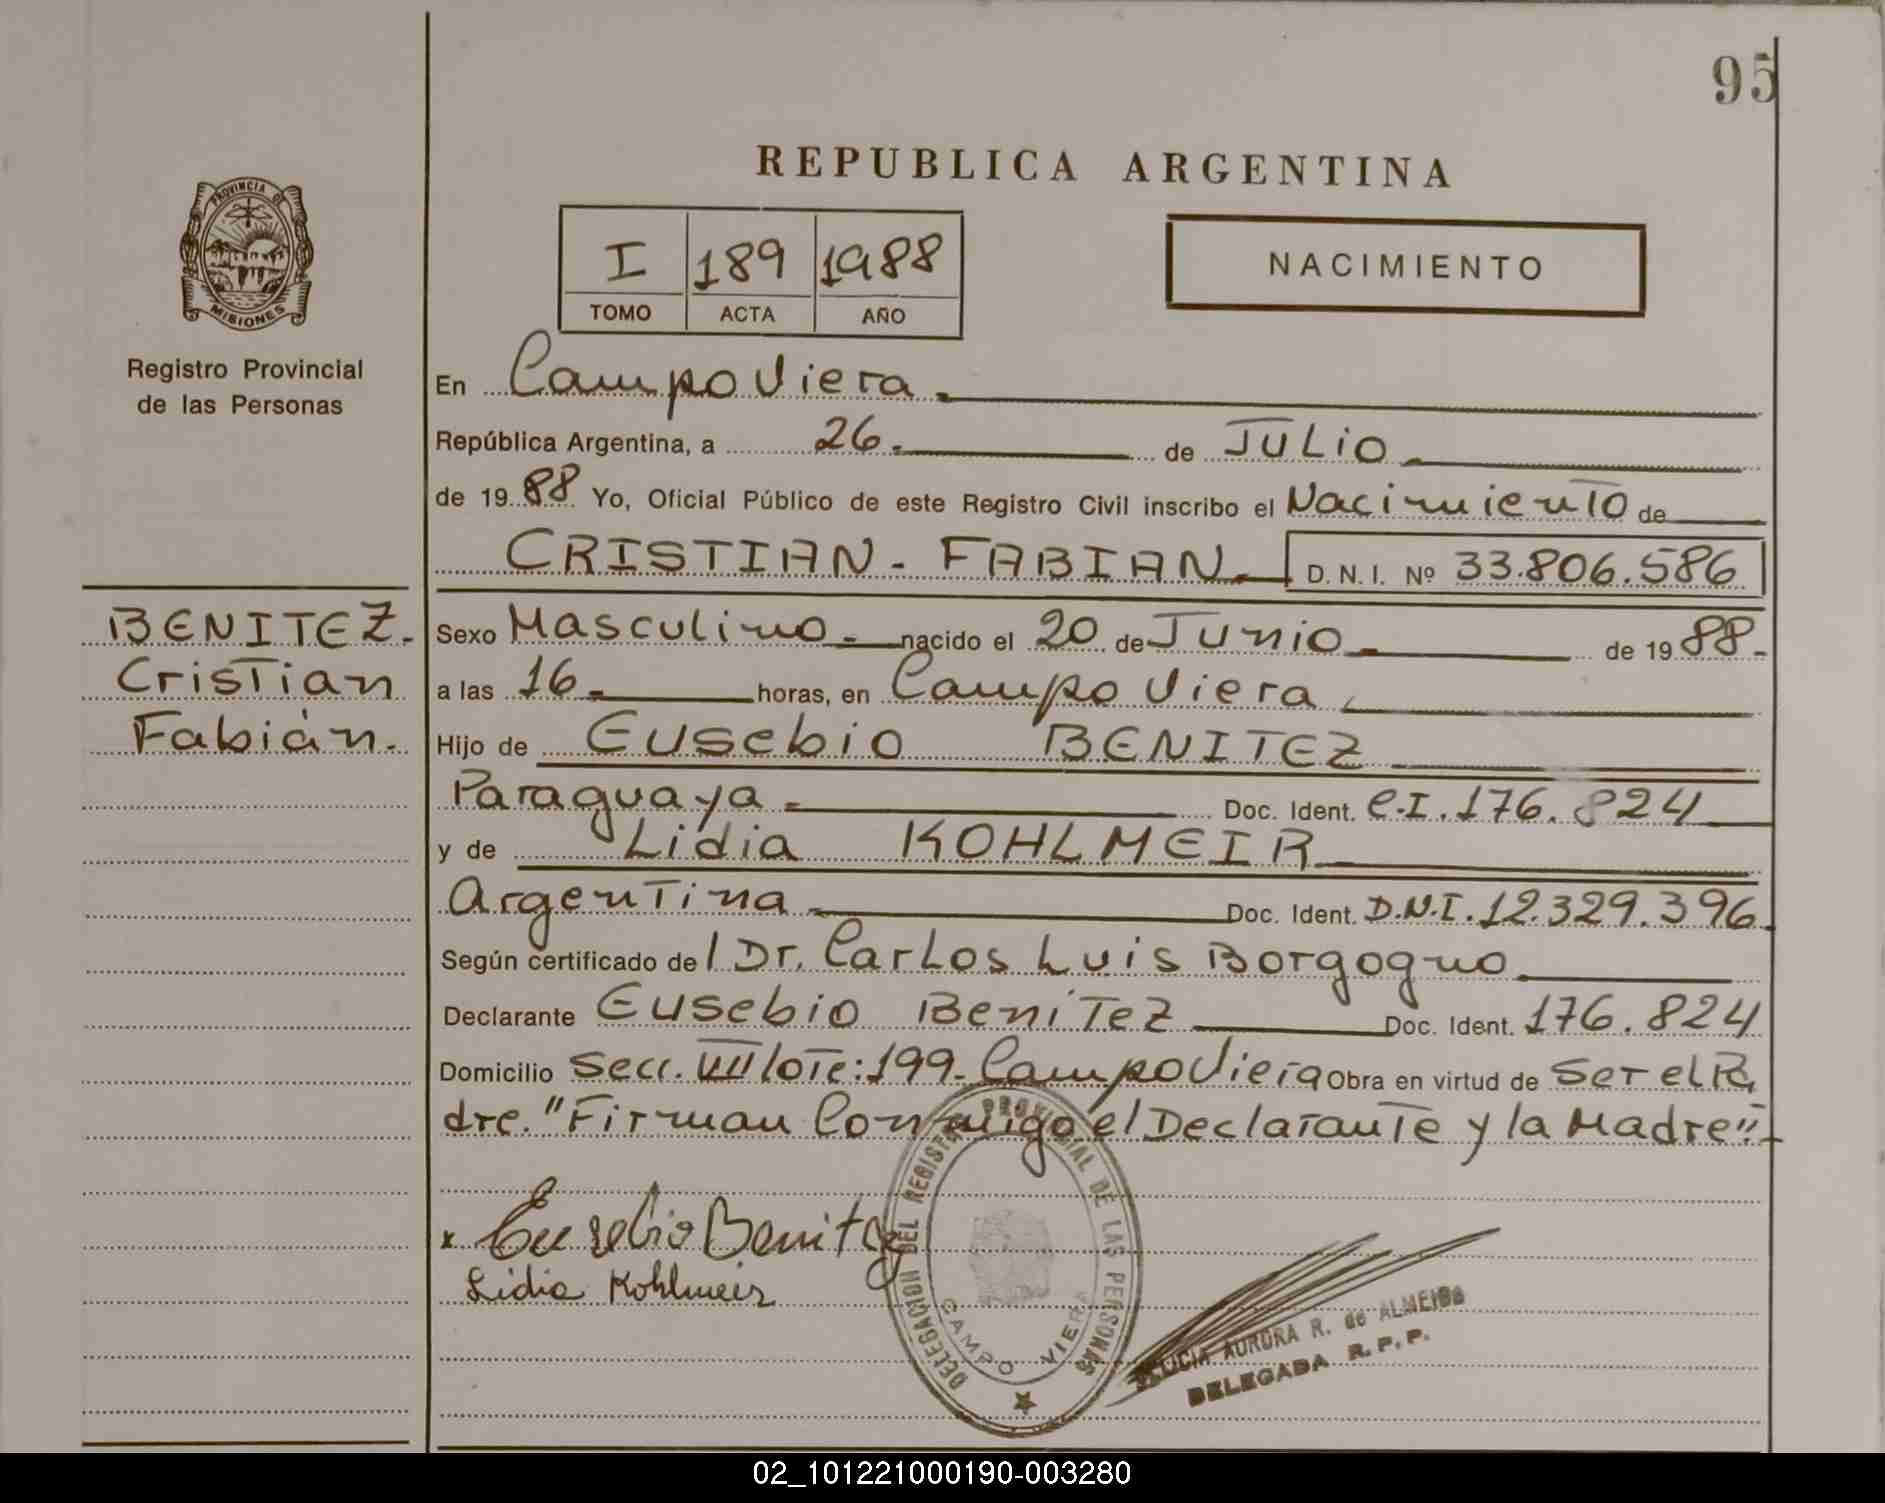 95
REPUBLICA ARGENTINA
PROVINCIA DE
MISIONES
Registro Provincial
de las Personas
I 189 1988
TOMO ACTA AÑO
NACIMIENTO
En Campo Viera
República Argentina, a 26 de JULIO
de 1988 Yo, Oficial Público de este Registro Civil inscribo el Nacimiento de
CRISTIAN - FABIAN D.N.I. Nº 33.806.586
BENITEZ.
Cristian
Fabián.
Sexo Masculino nacido el 20 de Junio de 1988
a las 16 horas, en Campo Viera
Hijo de Eusebio BENITEZ
Paraguaya Doc. Ident. C.I. 176.824
y de Lidia KOHLMEIR
Argentina Doc. Ident. D.N.I. 12.329.396
Según certificado del Dr. Carlos Luis Borgogno
Declarante Eusebio Benitez Doc. Ident. 176.824
Domicilio Secc. VIII lote: 199 - Campo Viera Obra en virtud de Ser el Pa
dre. "Firman Conmigo el Declarante y la Madre".
x Eusebio Benitez
Lidia Kohlmeir
DELEGACION DEL REGISTRO PROVINCIAL DE LAS PERSONAS
CAMPO VIERA
AURORA R. de ALMEIDA
DELEGADA R.P.P.
02_101221000190-003280